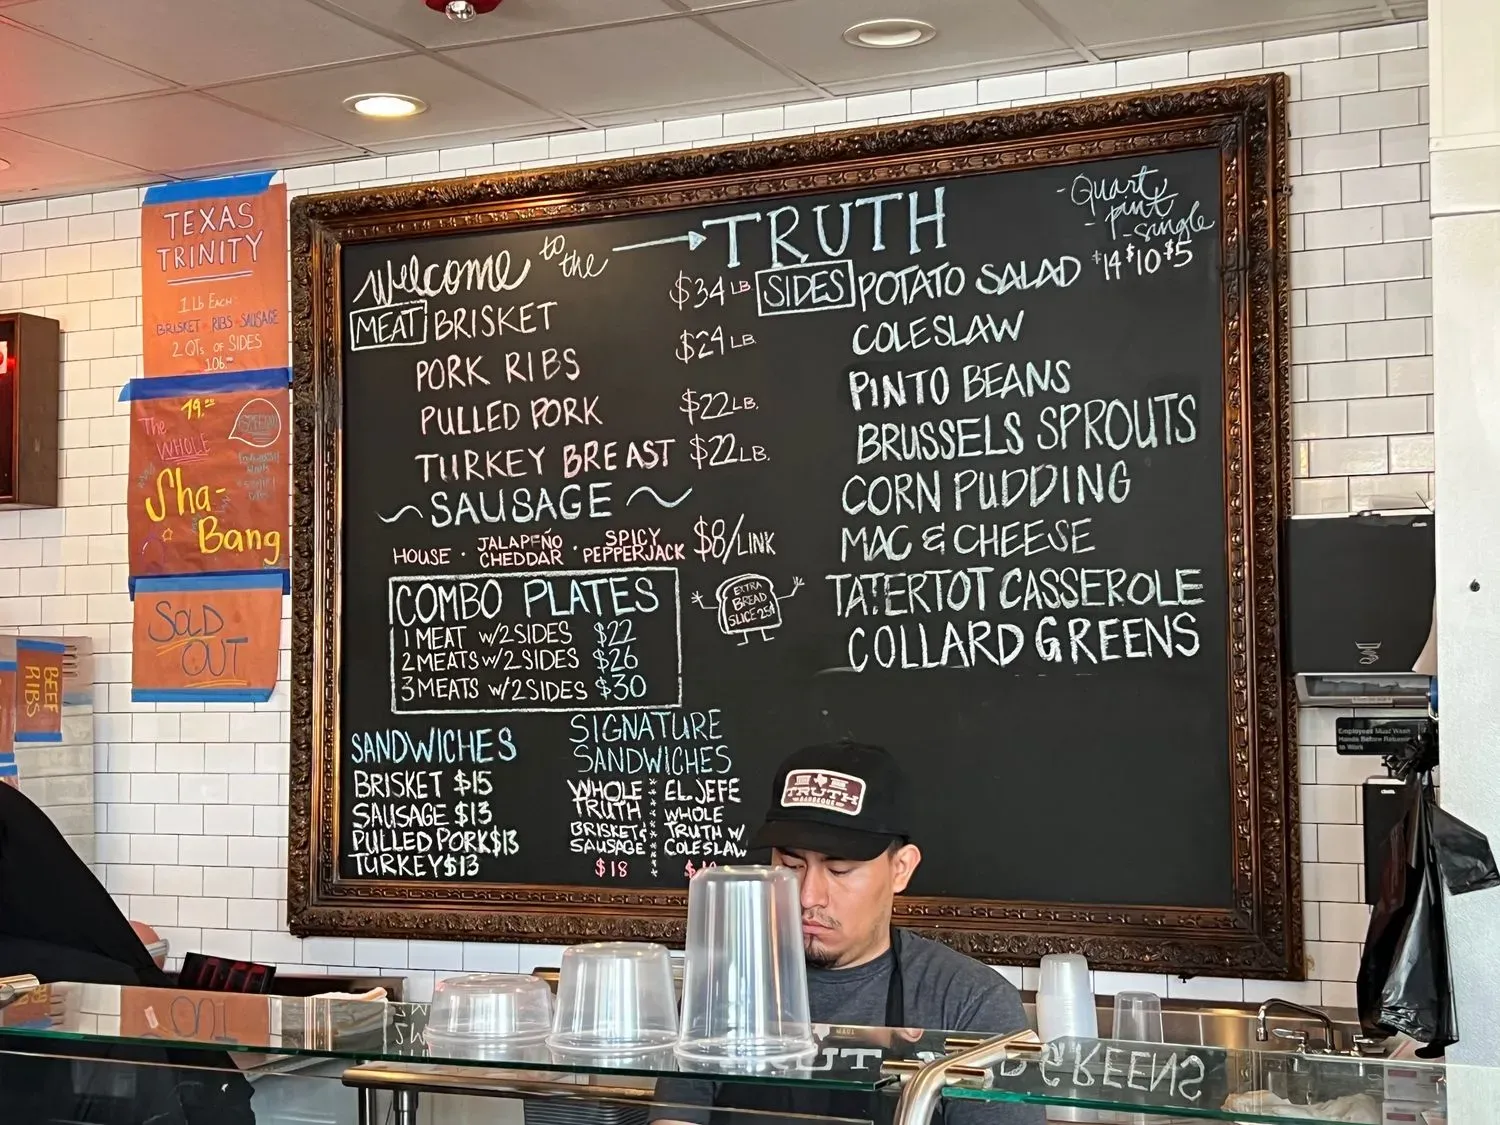 TEXAS
TRINITY
1 Lb EACH:
BRISKET - RIBS - SAUSAGE
2 QTs OF SIDES
106.00
79.00
The
WHOLE
Sha-
Bang
SOLD
OUT
BEEF
RIBS
Welcome to the → TRUTH
MEAT BRISKET $34 LB
PORK RIBS $24 LB
PULLED PORK $22 LB.
TURKEY BREAST $22 LB.
~ SAUSAGE ~
HOUSE · JALAPEÑO CHEDDAR · SPICY PEPPERJACK $8/LINK
COMBO PLATES
1 MEAT w/2 SIDES $22
2 MEATS w/2 SIDES $26
3 MEATS w/2 SIDES $30
EXTRA
BREAD
SLICE 25¢
SANDWICHES
BRISKET $15
SAUSAGE $13
PULLED PORK $13
TURKEY $13
SIGNATURE
SANDWICHES
WHOLE
TRUTH
BRISKET &
SAUSAGE
$18
EL JEFE
WHOLE
TRUTH W/
COLESLAW
- Quart
- pint
- single
$14 $10 $5
SIDES POTATO SALAD
COLESLAW
PINTO BEANS
BRUSSELS SPROUTS
CORN PUDDING
MAC & CHEESE
TATERTOT CASSEROLE
COLLARD GREENS
TRUTH
BARBEQUE
Employees Must Wash
Hands Before Returning
to Work